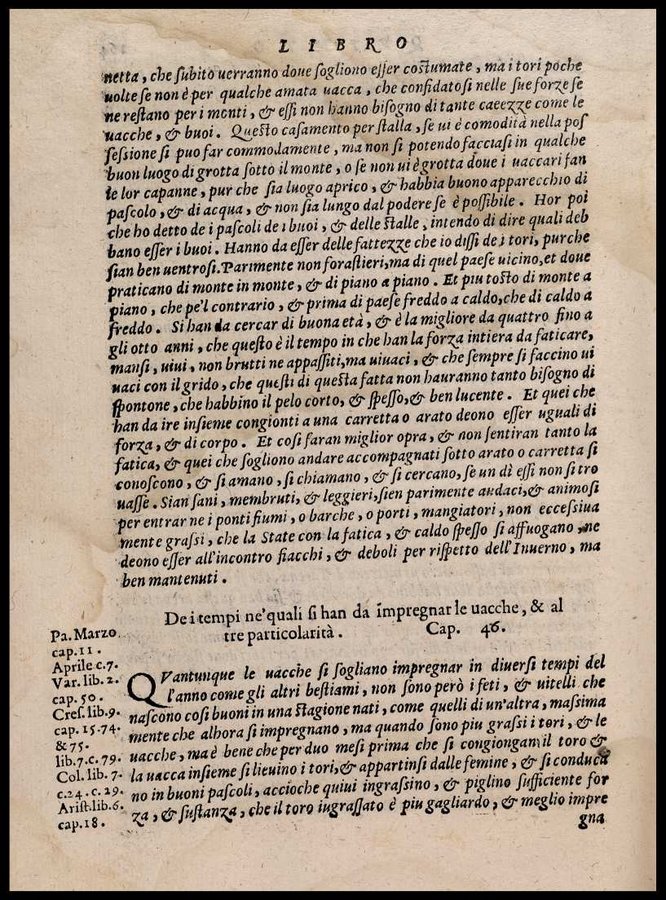 LIBRO
netta, che subito uerranno doue sogliono esser costumate, ma i tori poche
uolte se non è per qualche amata uacca, che confidatosi nelle sue forze se
ne restano per i monti, & essi non hanno bisogno di tante caeezze come le
uacche, & buoi. Questo casamento per stalla, se ui è comodità nella pos
sessione si puo far commodamente, ma non si potendo facciasi in qualche
buon luogo di grotta sotto il monte, o se non ui è grotta doue i uaccari fan
le lor capanne, pur che sia luogo aprico, & habbia buono apparecchio di
pascolo, & di acqua, & non sia lungo dal podere se è possibile. Hor poi
che ho detto de i pascoli de i buoi, & delle stalle, intendo di dire quali deb
bano esser i buoi. Hanno da esser delle fattezze che io dissi de i tori, purche
sian ben uentrosi. Parimente non forastieri, ma di quel paese uicino, et doue
praticano di monte in monte, & di piano a piano. Et piu tosto di monte a
piano, che pe'l contrario, & prima di paese freddo a caldo, che di caldo a
freddo. Si han da cercar di buona età, & è la migliore da quattro fino a
gli otto anni, che questo è il tempo in che han la forza intiera da faticare,
mansi, uiui, non brutti ne appassiti, ma uiuaci, & che sempre si faccino ui
uaci con il grido, che questi di questa fatta non hauranno tanto bisogno di
spontone, che habbino il pelo corto, & spesso, & ben lucente. Et quei che
han da ire insieme congionti a una carretta o arato deono esser uguali di
forza, & di corpo. Et cosi faran miglior opra, & non sentiran tanto la
fatica, & quei che sogliono andare accompagnati sotto arato o carretta si
conoscono, & si amano, si chiamano, & si cercano, se un dì essi non si tro
uasse. Sian sani, membruti, & leggieri, sien parimente audaci, & animosi
per entrar ne i ponti fiumi, o barche, o porti, mangiatori, non eccessiua
mente grassi, che la State con la fatica, & caldo spesso si affuogano, ne
deono esser all'incontro fiacchi, & deboli per rispetto dell'Inuerno, ma
ben mantenuti.
De i tempi ne' quali si han da impregnar le uacche, & al
tre particolarità. Cap. 46.
Pa. Marzo
cap. 11.
Aprile c. 7.
Var. lib. 2.
cap. 50.
Cres. lib. 9.
cap. 15. 74.
& 75.
lib. 7. c. 79.
Col. lib. 7.
c. 24. c. 29.
Arist. lib. 6.
cap. 18.
QVantunque le uacche si sogliano impregnar in diuersi tempi del
l'anno come gli altri bestiami, non sono però i feti, & uitelli che
nascono cosi buoni in una stagione nati, come quelli di un'altra, massima
mente che alhora si impregnano, ma quando sono piu grassi i tori, & le
uacche, ma è bene che per duo mesi prima che si congiongan il toro &
la uacca insieme si lieuino i tori, & appartinsi dalle femine, & si conduca
no in buoni pascoli, accioche quiui ingrassino, & piglino sufficiente for
za, & sustanza, che il toro iugrassato è piu gagliardo, & meglio impre
gna